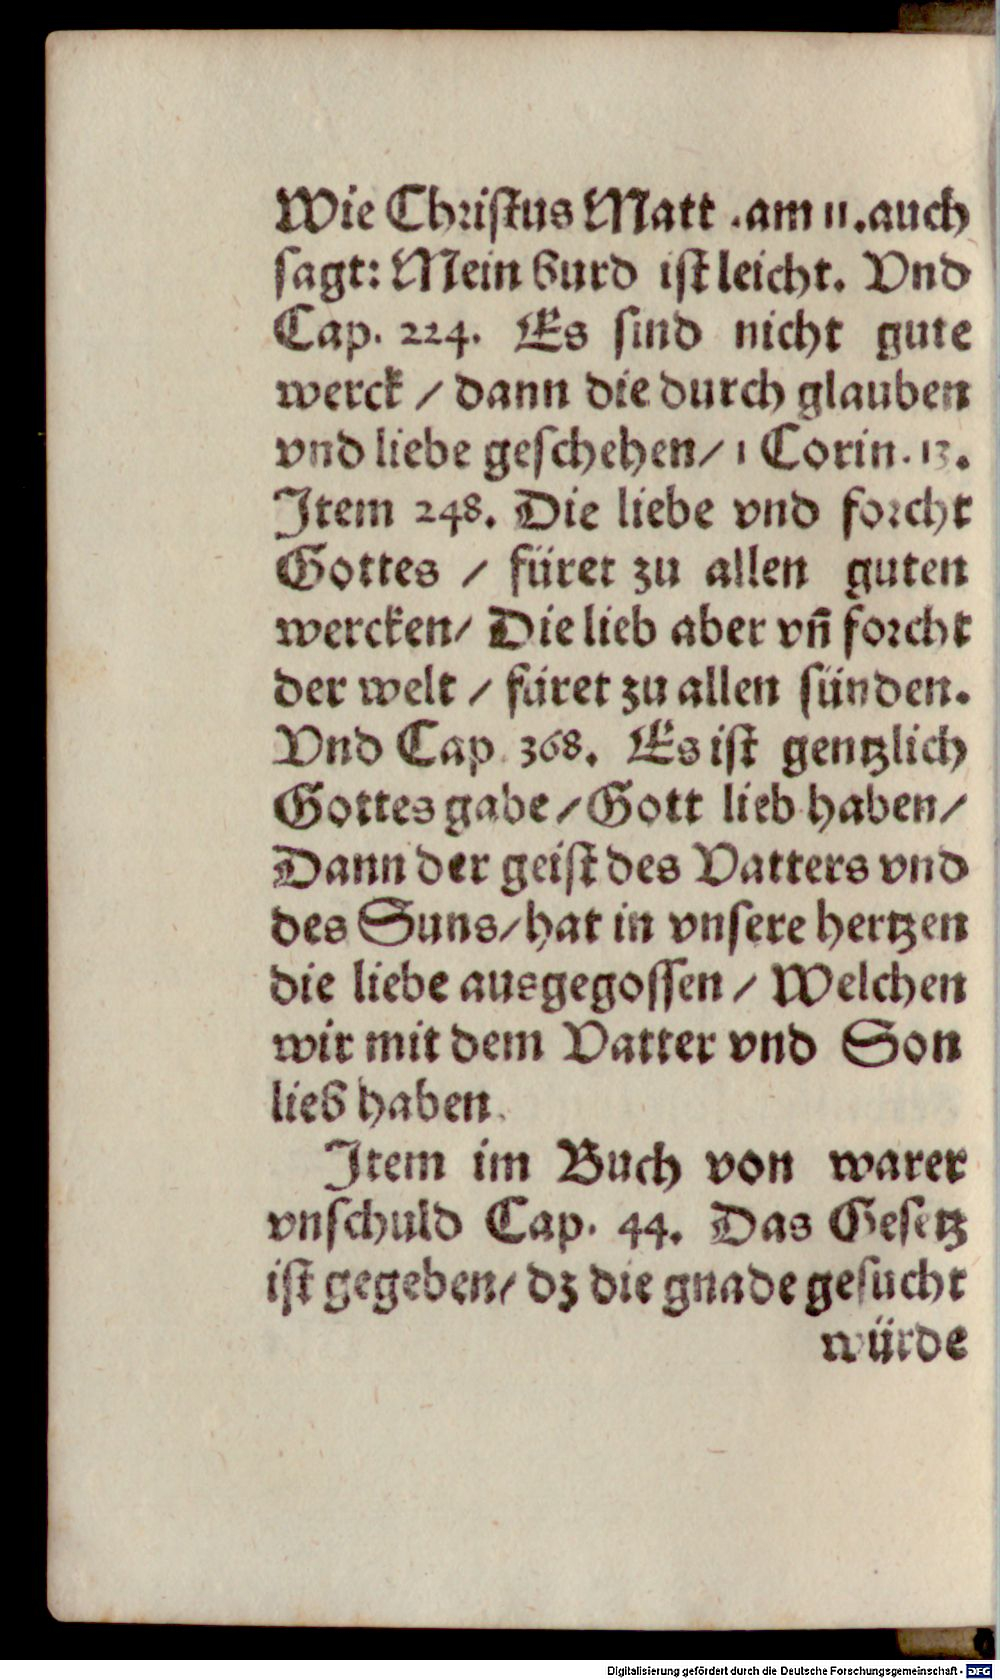 Wie Chriſtus Matt .am 11.auch
ſagt: Mein burd iſt leicht. Vnd
Cap. 224. Es ſind nicht gute
werck / dann die durch glauben
vnd liebe geſchehen/ 1 Corin. 13.
Item 248. Die liebe vnd forcht
Gottes / füret zu allen guten
wercken/ Die lieb aber vn̄ forcht
der welt / füret zu allen ſünden.
Vnd Cap 368. Es iſt gentzlich
Gottes gabe/Gott lieb haben/
Dann der geiſt des Vatters vnd
des Suns/hat in vnſere hertzen
die liebe ausgegoſſen / Welchen
wir mit dem Vatter vnd Son
lieb haben.
Item im Buch von warer
vnſchuld Cap. 44. Das Geſetz
iſt gegeben/ dz die gnade geſucht
würde
Digitalisierung gefördert durch die Deutsche Forschungsgemeinschaft - DFG